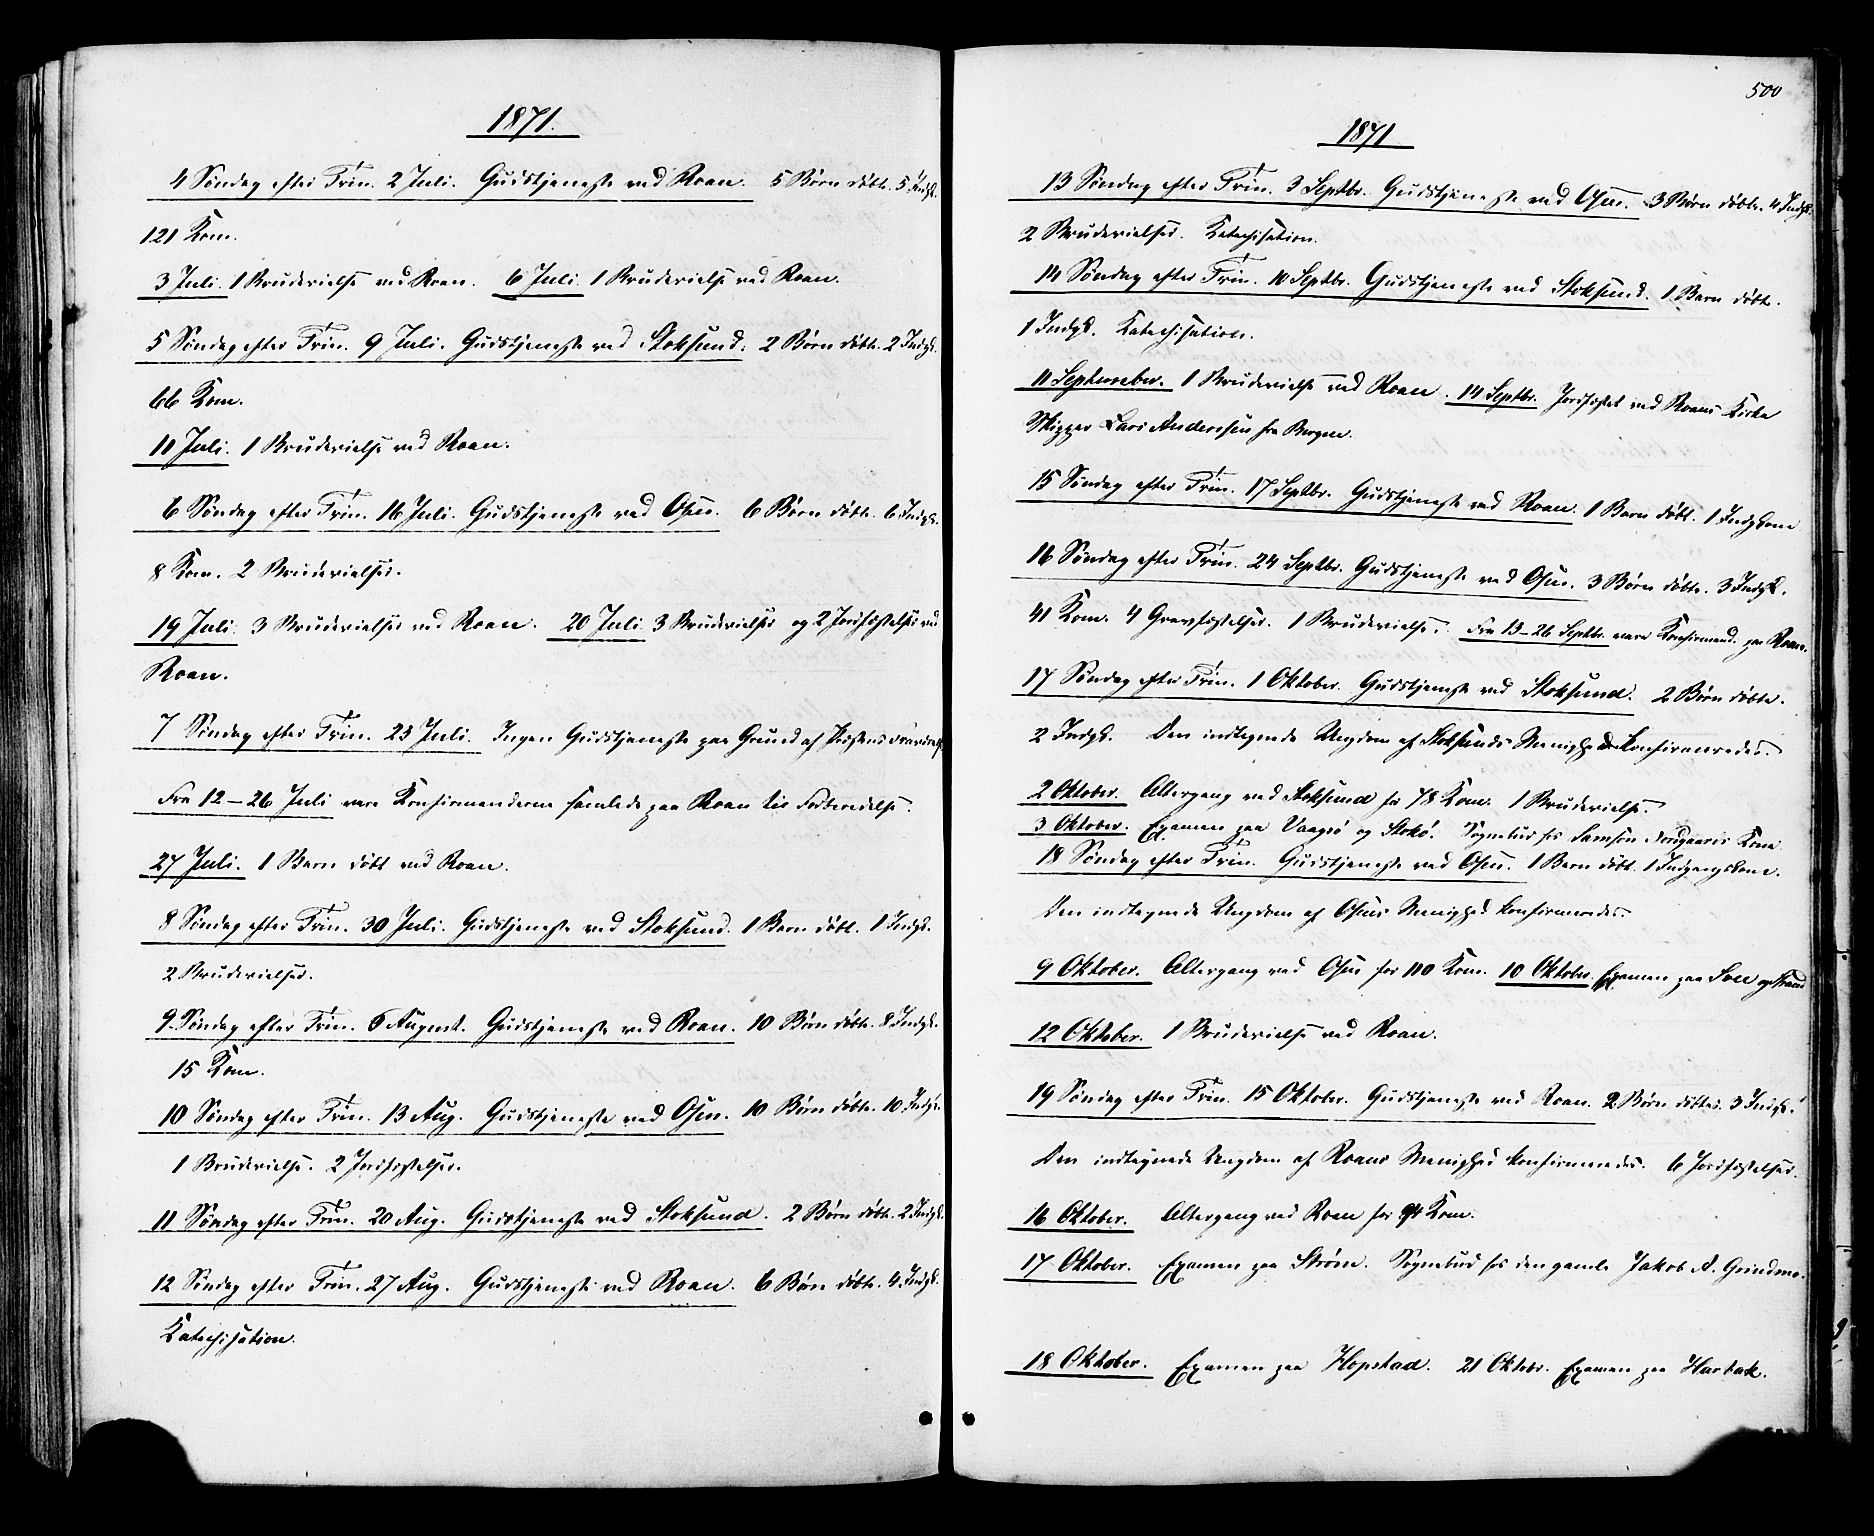 1871.
4 Søndag efter Trin. 2 Juli. Gudstjeneste ved Roan. 5 Børn døbte. 5 Indgk.
121 Kom.
3 Juli. 1 Brudevielse ved Roan. 6 Juli. 1 Brudevielse ved Roan.
5 Søndag efter Trin. 9 Juli. Gudstjeneste ved Stoksund. 2 Børn døbte. 2 Indgk.
66 Kom.
11 Juli. 1 Brudevielse ved Roan.
6 Søndag efter Trin. 16 Juli. Gudstjeneste ved Osen. 6 Børn døbte. 6 Indgk.
8 Kom. 2 Brudevielser.
19 Juli. 3 Brudevielser ved Roan. 20 Juli 3 Brudevielser og 2 Jordfæstelser ved
Roan.
7 Søndag efter Trin. 23 Juli. Ingen Gudstjeneste paa Grund af
Fra 12-26 Juli vare Konfirmanderne samlede paa Roan til Forberedelse.
27 Juli. 1 Barn døbt ved Roan.
8 Søndag efter Trin. 30 Juli. Gudstjeneste ved Stoksund. 1 Barn døbt. 1 Indgk.
2 Brudevielser.
9. Søndag efter Trin. 6 August. Gudstjeneste ved Roan. 10 Børn døbte. 8 Indgk.
15 Kom.
10 Søndag efter Trin. 13 Aug. Gudstjeneste ved Osen. 10 Børn døbte. 10 Indgk.
1 Brudevielse. 2 Jordfæstelser.
11 Søndag efter Trin. 20 Aug. Gudstjeneste ved Stoksund. 2 Børn døbte. 2 Indgk.
12 Søndag efter Trin. 27 Aug. Gudstjeneste ved Roan. 6 Børn døbte. 4 Indgk.
Katechisation.
500
1871
13 Søndag efter Trin. 3 Septbr. Gudstjeneste ved Osen. 3 Børn døbte. 4 Indgk.
2 Brudevielser. Katechisation.
14 Søndag efter Trin. 10 Septbr. Gudstjeneste ved Stoksund. 1 Barn døbt.
1 Indgk. Katechisation.
11 September. 1 Brudevielse ved Roan. 14 Septbr. Jordfæstet ved Roans Kirke
Skipper Lars Anderssen fra Bergen.
15 Søndag efter Trin. 17 Septbr. Gudstjeneste ved Roan. 1 Barn døbt. 1 Indgkone
16 Søndag efter Trin. 24 Septbr. Gudstjeneste ved Osen. 3 Børn døbte. 3 Indgk.
41 Kom. 4 Gravfæstelser. 1 Brudevielse. Fra 13-26 Septbr. vare Konfirmand. paa Roan.
17 Søndag efter Trin. 1 Oktober. Gudstjeneste ved Stoksund. 2 Børn døbte.
2 Indgk. Den indtegnede Ungdom af Stoksunds Menighed konfirmeredes.
2 Oktober. Altergang ved Stoksund for 78 Kom. 1 Brudevielse.
3 Oktober. Examen paa Vaagsø og Stokø. Sognebud for Samson Kone
18 Søndag efter Trin. Gudstjeneste ved Osen. 1 Barn døbt. 1 Indgangskone.
Den indtegnede Ungdom af Osens Menighed konfirmeredes.
9 Oktober. Altergang ved Osen for 110 Kom. 10 Oktober. Examen paa og Strand
12 Oktober. 1 Brudevielse ved Roan.
19 Søndag efter Trin. 15 Oktober. Gudstjeneste ved Roan. 2 Børn døbtes. 3 Indgk.
Den indtegnede Ungdom af Roans Menighed konfirmeredes. 6 Jordfæstelser.
16 Oktober. Altergang ved Roan for 94 Kom.
17 Oktober. Examen paa Strøm. Sognebud for den gamle Jakob A. Grindmo.
18 Oktober. Examen paa Hopstad. 21 Oktobr. Examen paa Harbak.